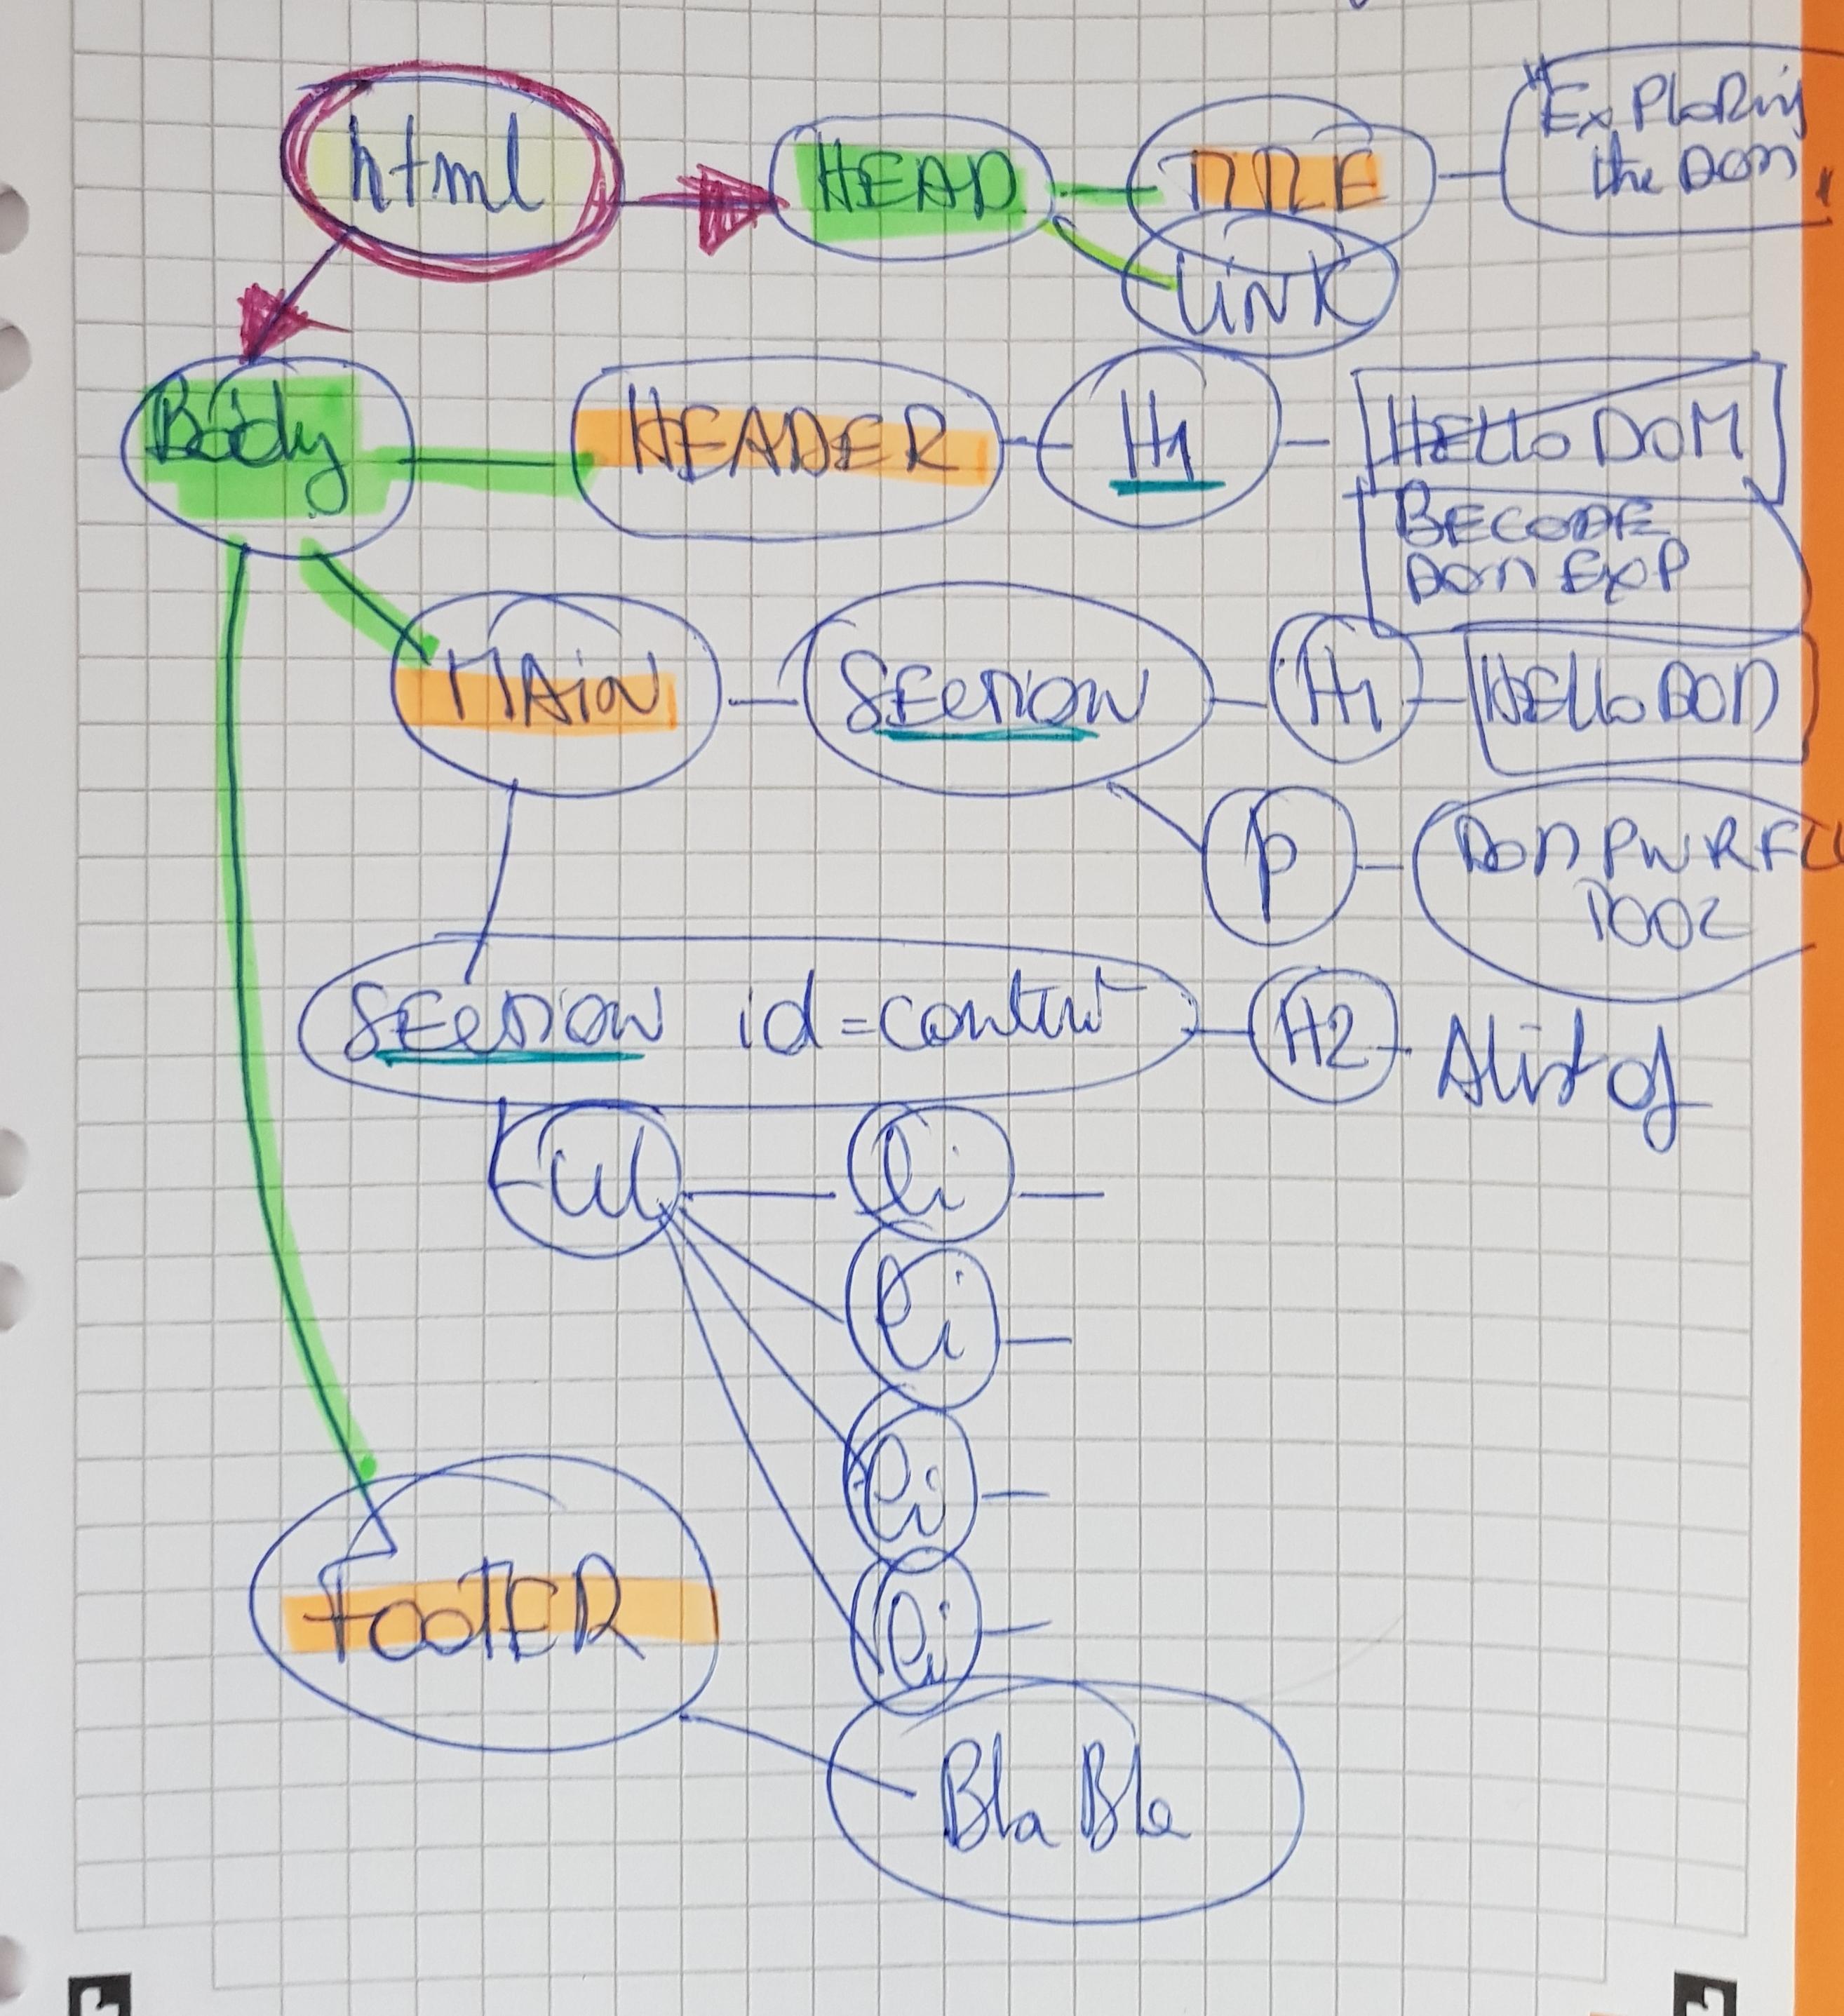 html
HEAD
TITLE
"Exploring
the DOM
LINK
Body
HEADER
H1
HELLO DOM
BECODE
DOM EXP
MAiN
SECTION
H1
HELLO DOM
p
DOM PWRFU
TOOL
SECTION id=content
H2
A list of
ul
li
li
li
li
FOOTER
Bla Bla